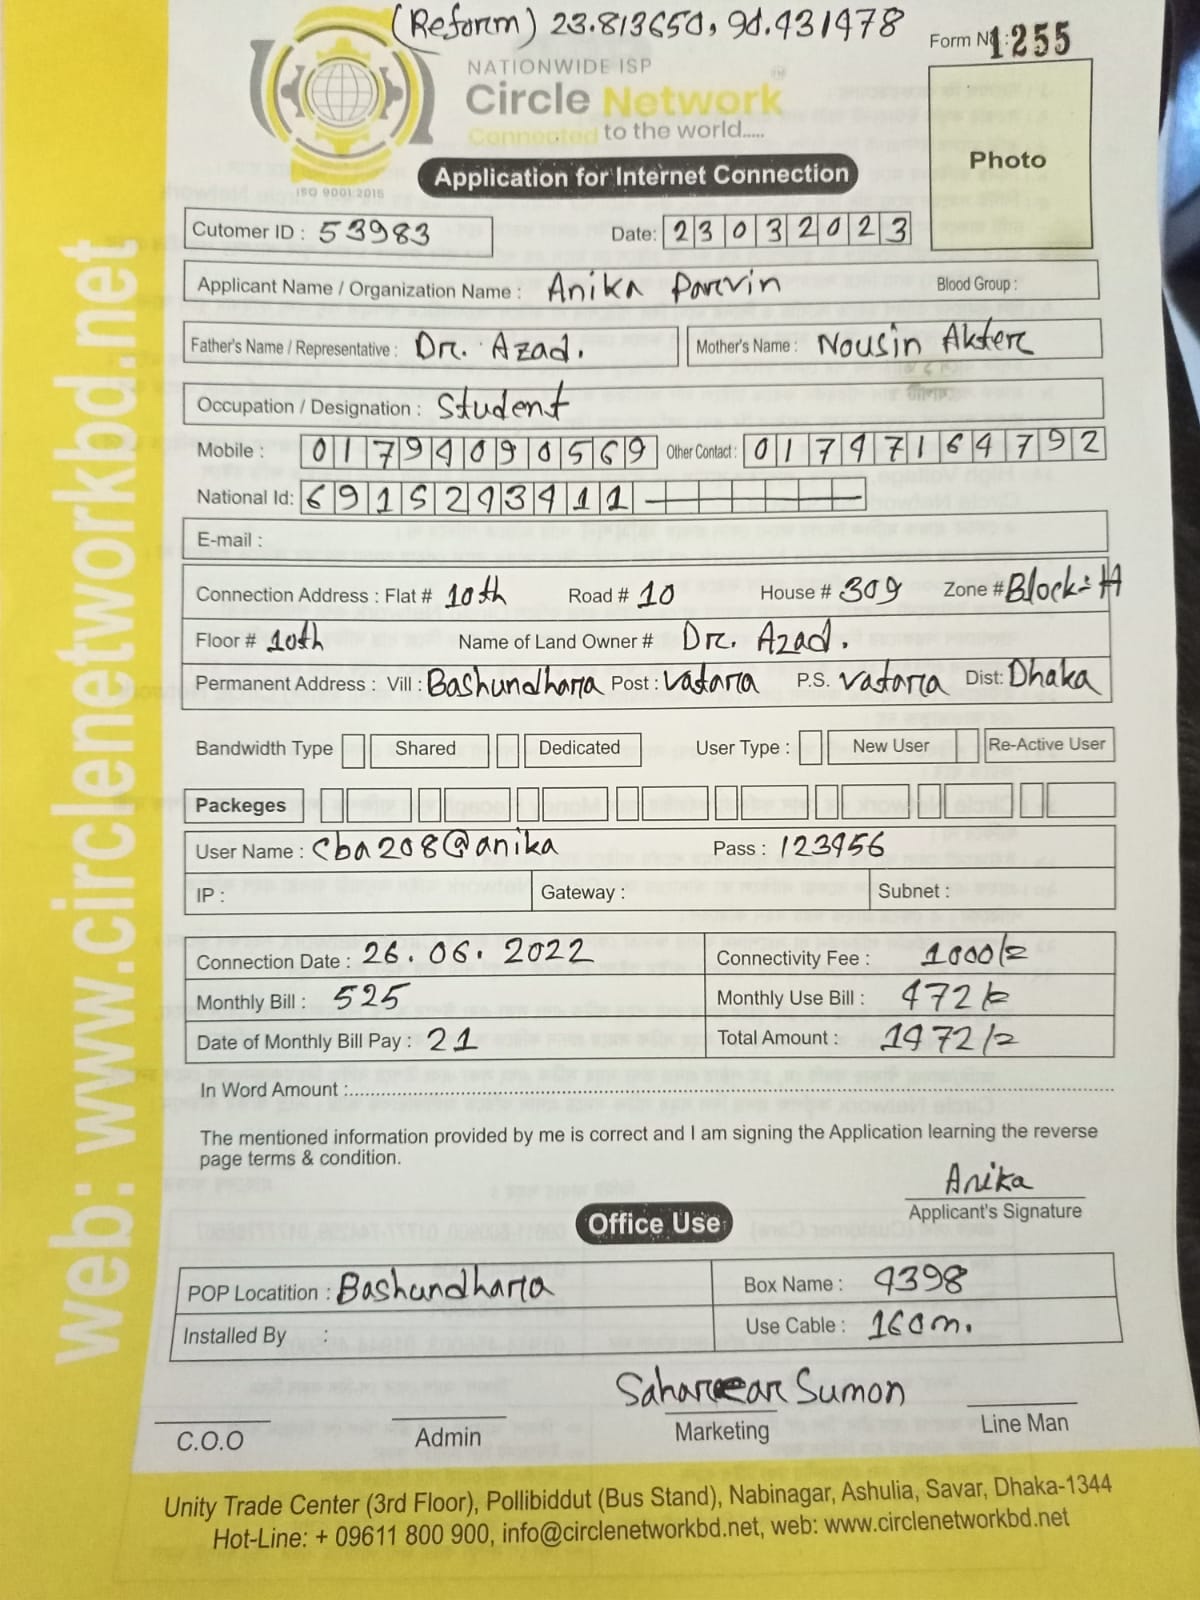 (Reform) 23.813650, 90.431478
Form No: 1255
NATIONWIDE ISP
Circle Network
Connected to the world.....
ISO 9001:2015
Application for Internet Connection
Photo
Cutomer ID : 53983 Date: 23032023
Applicant Name / Organization Name : Anika Parvin Blood Group :
Father's Name / Representative : Dr. Azad. Mother's Name : Nousin Akter
Occupation / Designation : Student
Mobile : 01794090569 Other Contact : 01747164792
National Id: 6915243411
E-mail :
Connection Address : Flat # 10th Road # 10 House # 309 Zone # Block-H
Floor # 10th Name of Land Owner # Dr. Azad.
Permanent Address : Vill : Bashundhara Post : Vatara P.S. Vatara Dist: Dhaka
Bandwidth Type Shared Dedicated User Type : New User Re-Active User
Packeges
User Name : cba208@anika Pass : 123456
IP : Gateway : Subnet :
Connection Date : 26.06.2022 Connectivity Fee : 1000/=
Monthly Bill : 525 Monthly Use Bill : 472/=
Date of Monthly Bill Pay : 21 Total Amount : 1472/=
In Word Amount :
The mentioned information provided by me is correct and I am signing the Application learning the reverse
page terms & condition.
Anika
Applicant's Signature
Office Use
POP Locatition : Bashundhara Box Name : 4398
Installed By : Use Cable : 160m.
Sumon
C.O.O Admin Marketing Line Man
Unity Trade Center (3rd Floor), Pollibiddut (Bus Stand), Nabinagar, Ashulia, Savar, Dhaka-1344
Hot-Line: + 09611 800 900, info@circlenetworkbd.net, web: www.circlenetworkbd.net
web: www.circlenetworkbd.net